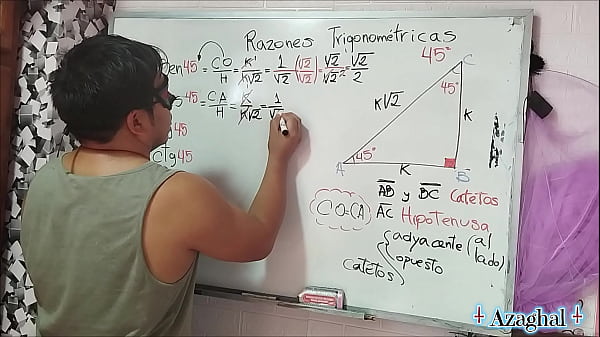 Razones Trigonométricas
en 45 = CO/H = K/K√2 = 1/√2 (√2/√2) = √2/√2² = √2/2
45 = CA/H = K/K√2 = 1/√
45
ctg 45
45°
C
45°
K√2
K
A 45° K B
AB y BC Catetos
CO=CA AC Hipotenusa
catetos { adyacente (al lado)
opuesto
Azaghal